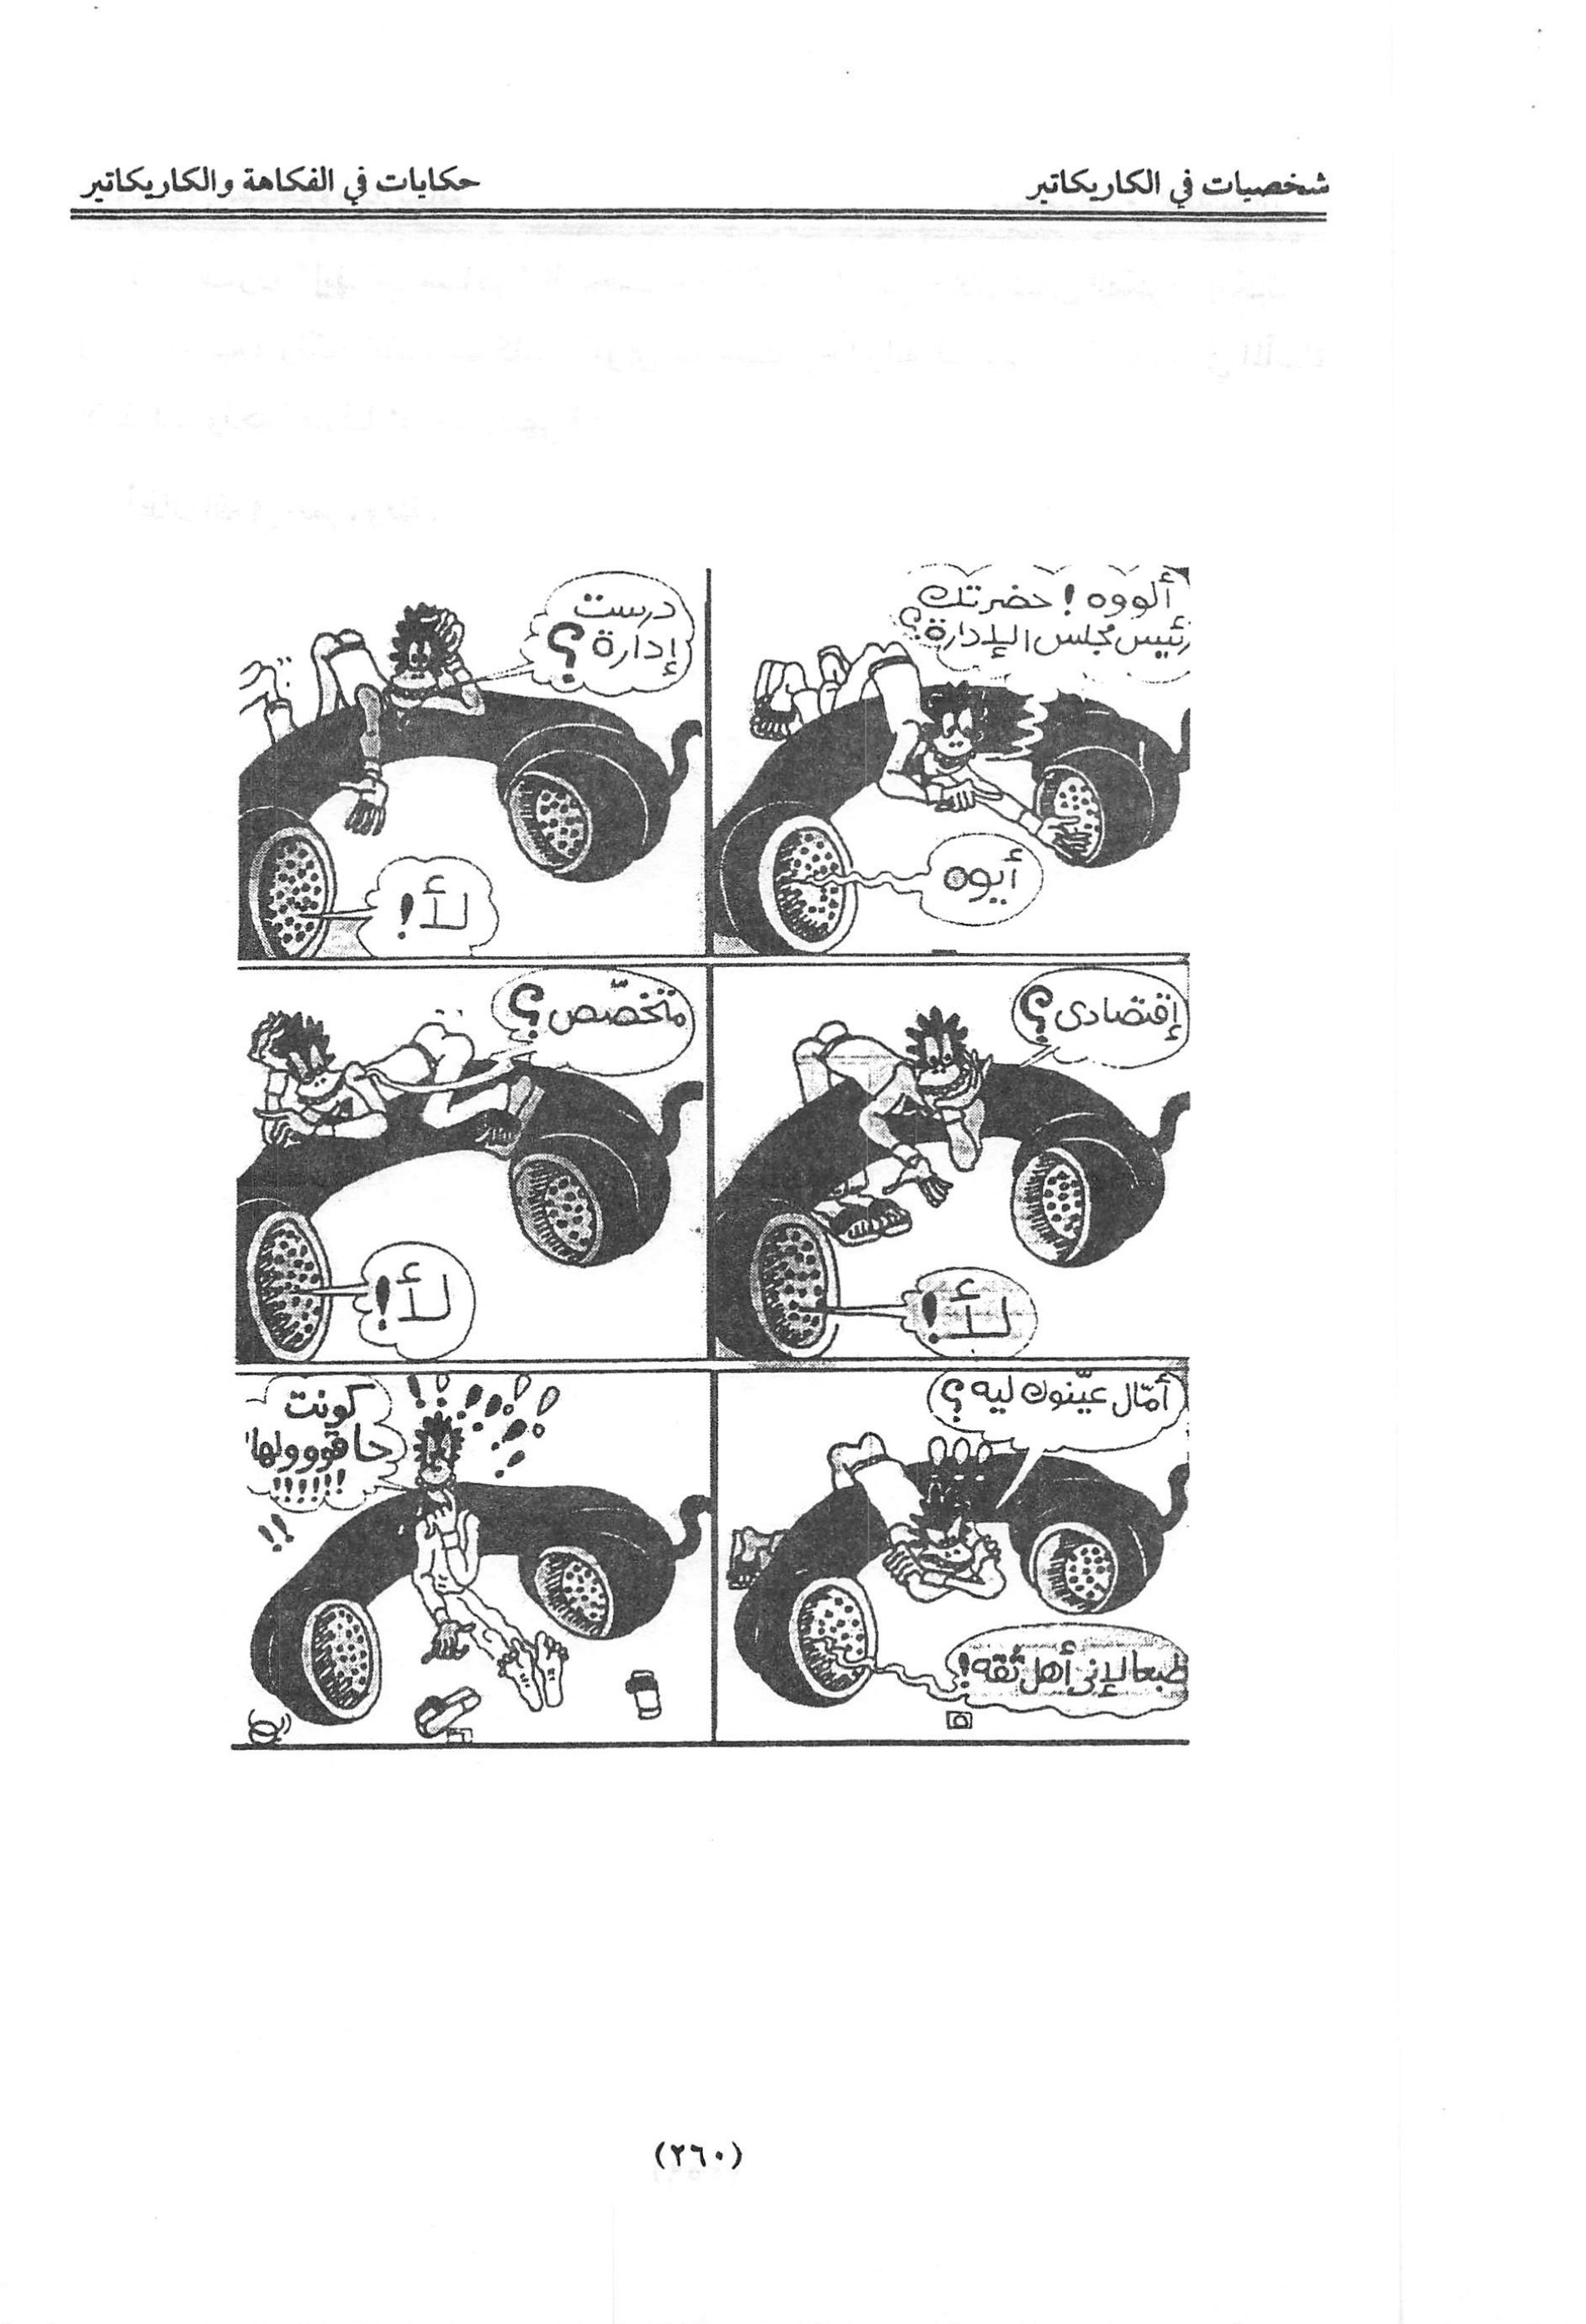 شخصيات في الكاريكاتير
حكايات في الفكاهة والكاريكاتير
ألووه! حضرتك
رئيس مجلس الإدارة؟
أيوه
درست
إدارة؟
لأ!
إقتصادى؟
لأ!
متخصّص؟
لأ!
أمّال عيّنوك ليه؟
طبعا لإنى أهل ثقه!
كونت
حاقووولها
!!!!!!
!!
(٢٦٠)